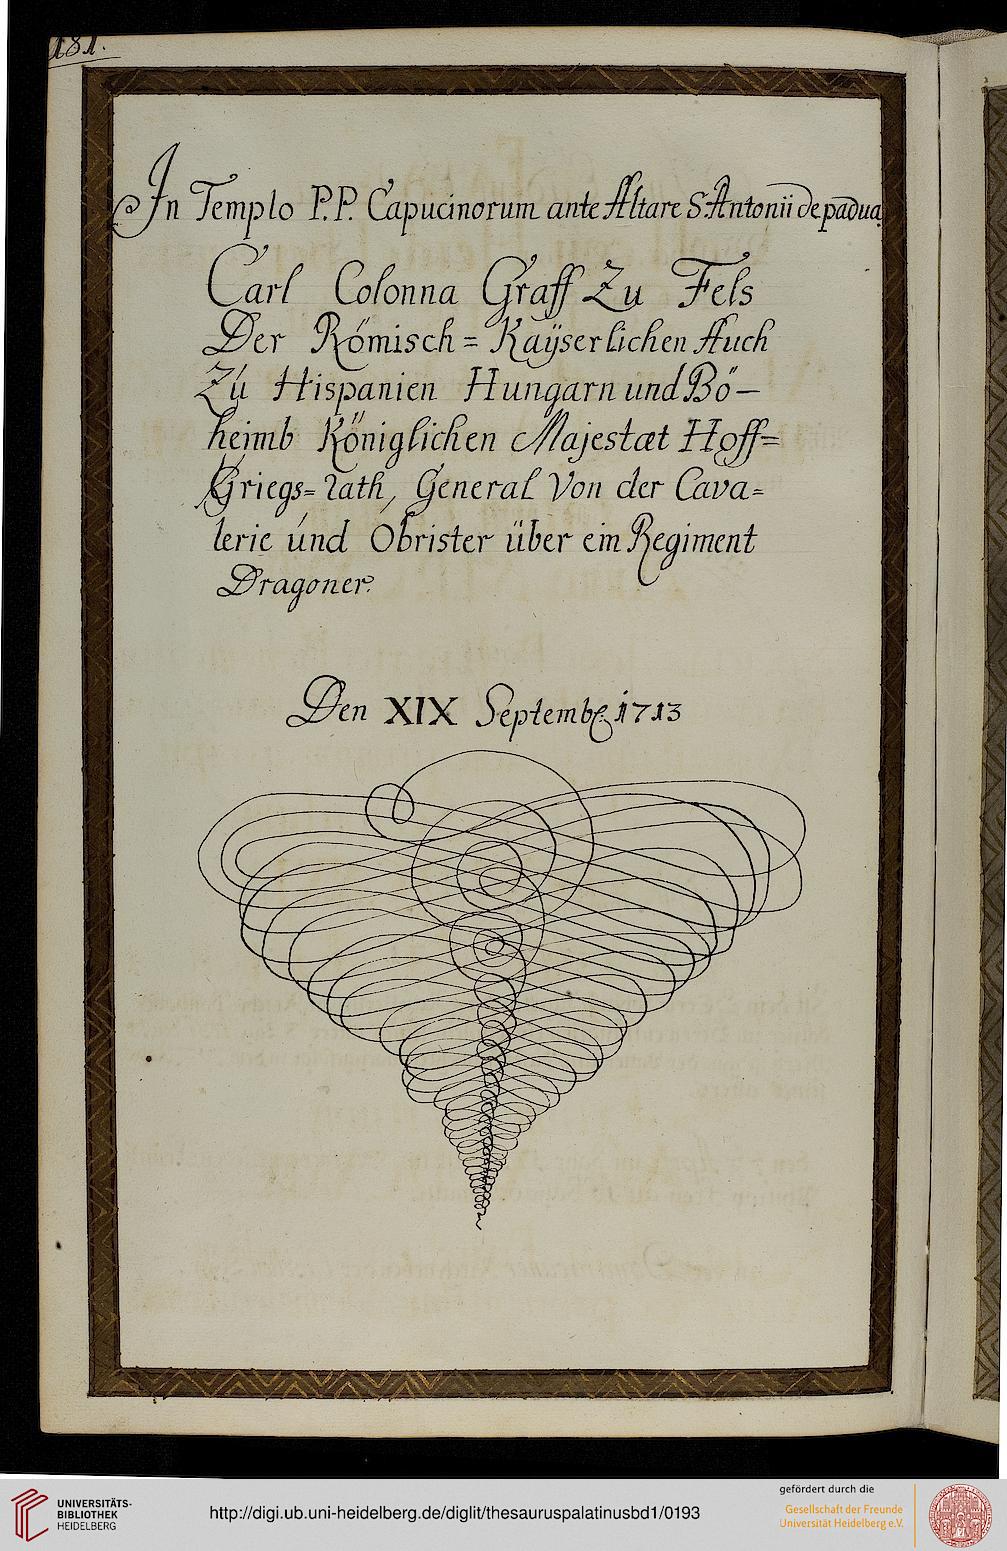 181.
In Templo P.P. Capucinorum ante Altare S. Antonii de padua
Carl Colonna Graff Zu Fels
Der Römisch = Kaÿserlichen Auch
Zu Hispanien Hungarn und Bö–
heimb Königlichen Majestæt Hoff=
Griegs= Rath, General Von der Cava=
lerie und Obrister über ein Regiment
Dragoner.
Den XIX Septembr. 1713
UNIVERSITÄTS-
BIBLIOTHEK
HEIDELBERG
http://digi.ub.uni-heidelberg.de/diglit/thesauruspalatinusbd1/0193
gefördert durch die
Gesellschaft der Freunde
Universität Heidelberg e.V.